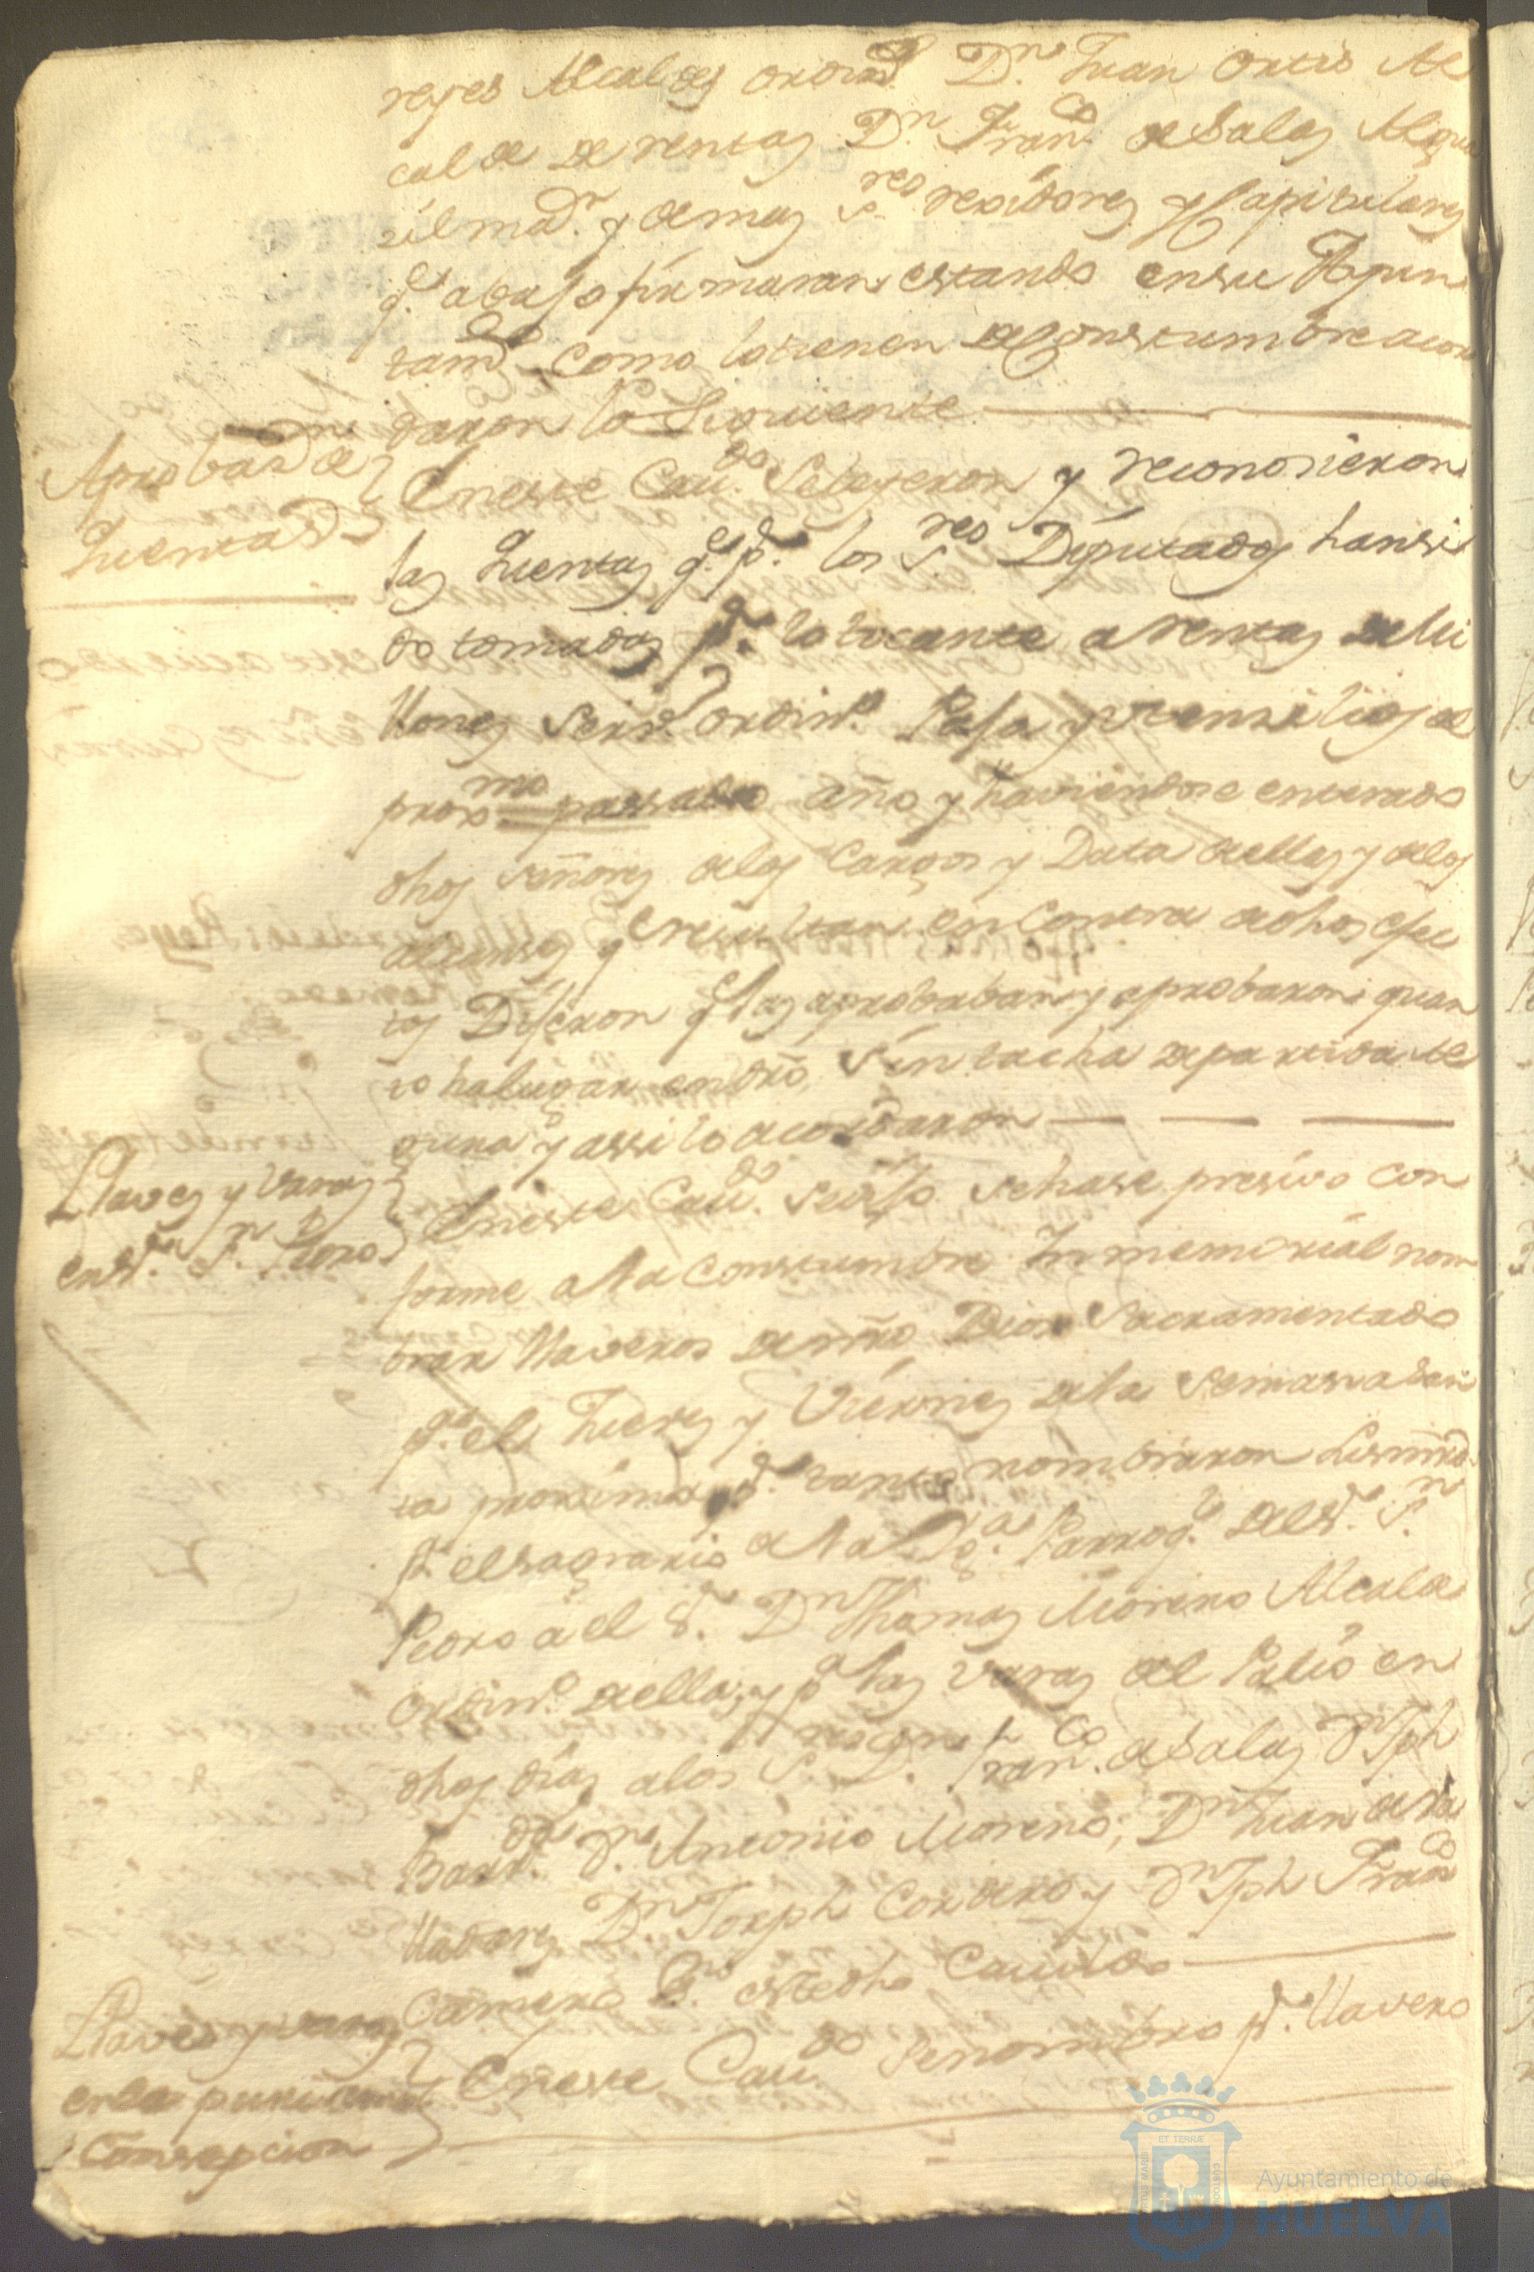 reyes Alcaldes ordinos Dn. Juan Ortis Al
calde de rentas Dn. Franco. de Salas Algua
sil maor. y demas Sres. rexidores y Capitulares
qe. abajo firmaran estando en su Ayun
tamto. como lo tienen de Constumbre acor
daron lo Siguiente
Aprobazn. de
Quentas
En este Cavdo. se leyeron y reconosieron
las Quentas qe. pr. los Sres. Diputados han si
do tomadas pr. lo tocante a rentas de Mi
llones Servo. ordino. Paja y utensilios de
proxmo. passado año y haviendose enterado
dhos señores de los Cargos y Data de ellas y de los
alcanses qe resultan en Contra de dhos efec
tos Dijeron qe las aprobaban y aprobaron quan
to ha lugar en dro. sin tacha de partida al
guna y assi lo acordaron
Llaves y Varas
en Sr. Sn. Pedro
En este Cavdo. se dijo se hase presiso con
forme a la Constumbre Inmemorial nom
brar llaveros de nro Dios Sacramentado
pa. el Jueves y Viernes de la semana san
ta proxima pr. tanto nombraron
pa el sagrario de la Yga. Parroql. del Sr. Sn.
Pedro a el Sr. Dn Thomas Moreno Alcalde
ordino. de ella, y pa las Varas del Palio en
dhos dias a los Sres Dn. Franco. de Salas Dn Jph
Dn. Antonio Moreno, Dn Juan de la
Dn. Joseph Cordero y Dn Jph Franco
Camero Esno. de dho Cavildo
Llaves y varas
en la purissima
Consepcion
En este Cavdo. se nombro pr. llavero
ET TERRÆ
Ayuntamiento de
HUELVA